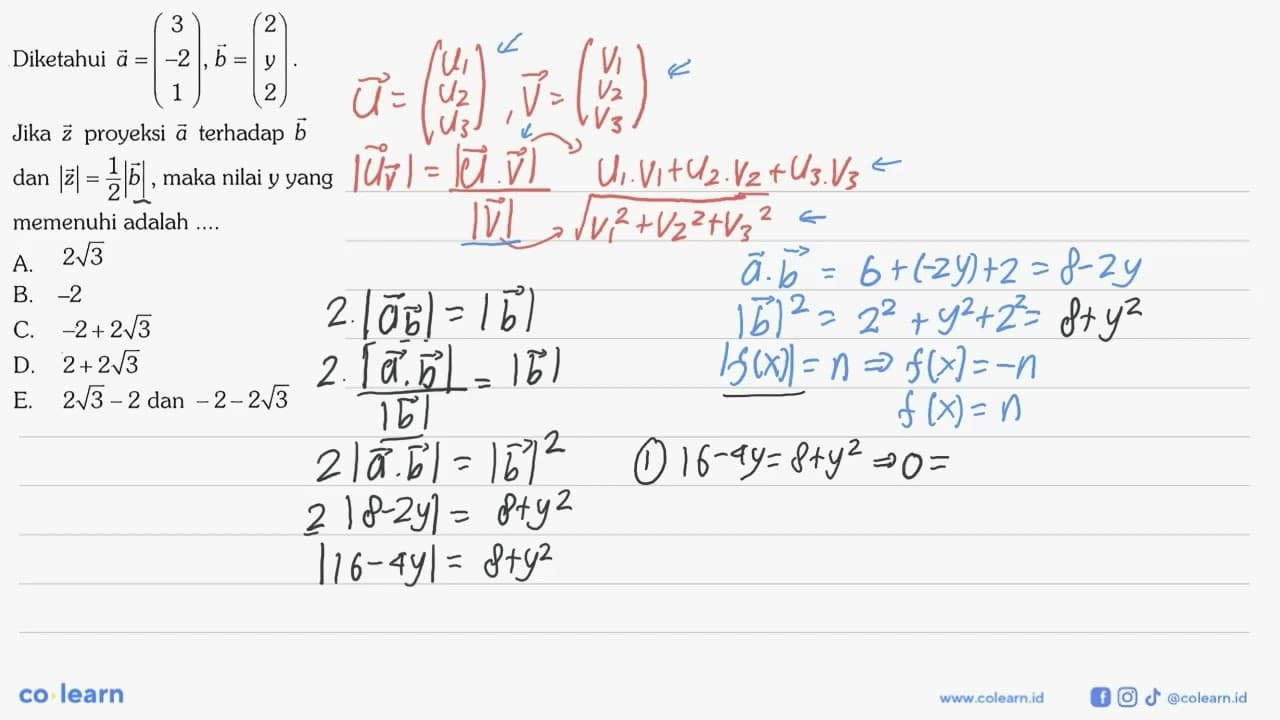 Diketahui a⃗ = (3 –2 1), b⃗ = (2 y 2).
Jika z⃗ proyeksi a⃗ terhadap b⃗
dan |z⃗| = 1/2|b⃗|, maka nilai y yang
memenuhi adalah ....
A. 2√3
B. –2
C. –2 + 2√3
D. 2 + 2√3
E. 2√3 – 2 dan – 2 – 2√3
u⃗ = (u1 u2 u3), v⃗ = (v1 v2 v3)
|u⃗v⃗| = |u⃗ . v⃗| / |v⃗| → u1.v1 + u2.v2 + u3.v3 / √v1² + v2² + v3²
2.|a⃗b⃗| = |b⃗|
2.|a⃗.b⃗| / |b⃗| = |b⃗|
2|a⃗.b⃗| = |b⃗|²
2|8-2y| = 8+y²
|16-4y| = 8+y²
a⃗.b⃗ = 6+(-2y)+2 = 8-2y
|b⃗|² = 2² + y² + 2² = 8+y²
|f(x)| = n ⇒ f(x) = -n
f(x) = n
① 16-4y = 8+y² ⇒ 0 =
co learn
www.colearn.id
@colearn.id